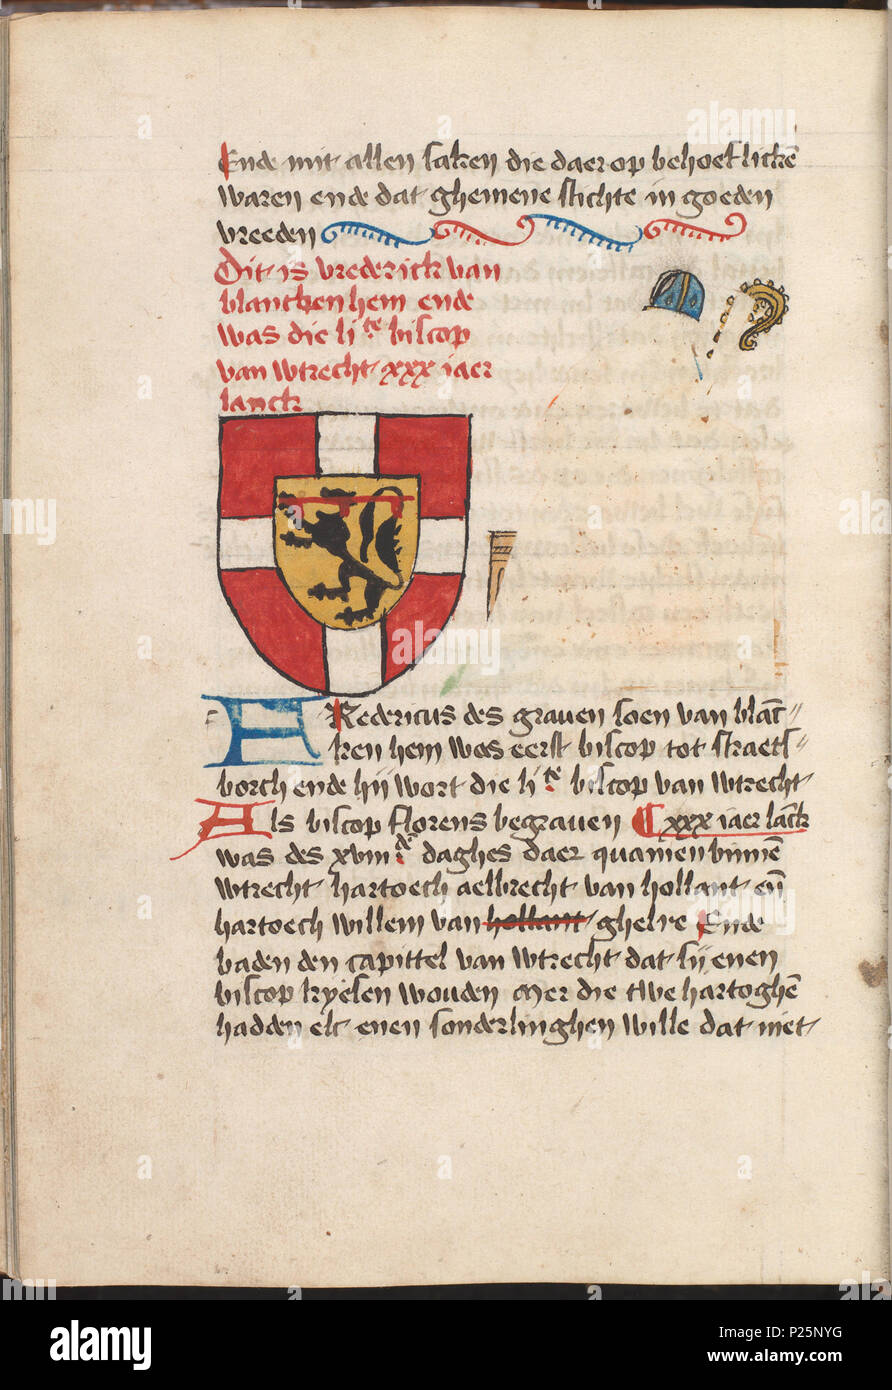 Ende mit allen saken die daer op behoeflickē
waren ende dat ghemene stichte in goeden
vreeden
Dit is vrederick van
blancken hem ende
was die li te biscop
van wtrecht xxx iaer
lanck
Redericus des grauen soen van blāc
ken hem was eerst biscop tot straets
borch ende hij wort die li te biscop van wtrecht
Als biscop florens begrauen xxx iaer lāck
was des xviii de daghes daer quamen binnē
wtrecht hartoech aelbrecht van hollant eñ
hartoech willem van hollant ghelre Ende
baden den capittel van wtrecht dat sij enen
biscop kyesen wouden Mer die twe hartoghē
hadden elc enen sonderlinghen wille dat niet
alamy
Image ID: P25NYG
www.alamy.com